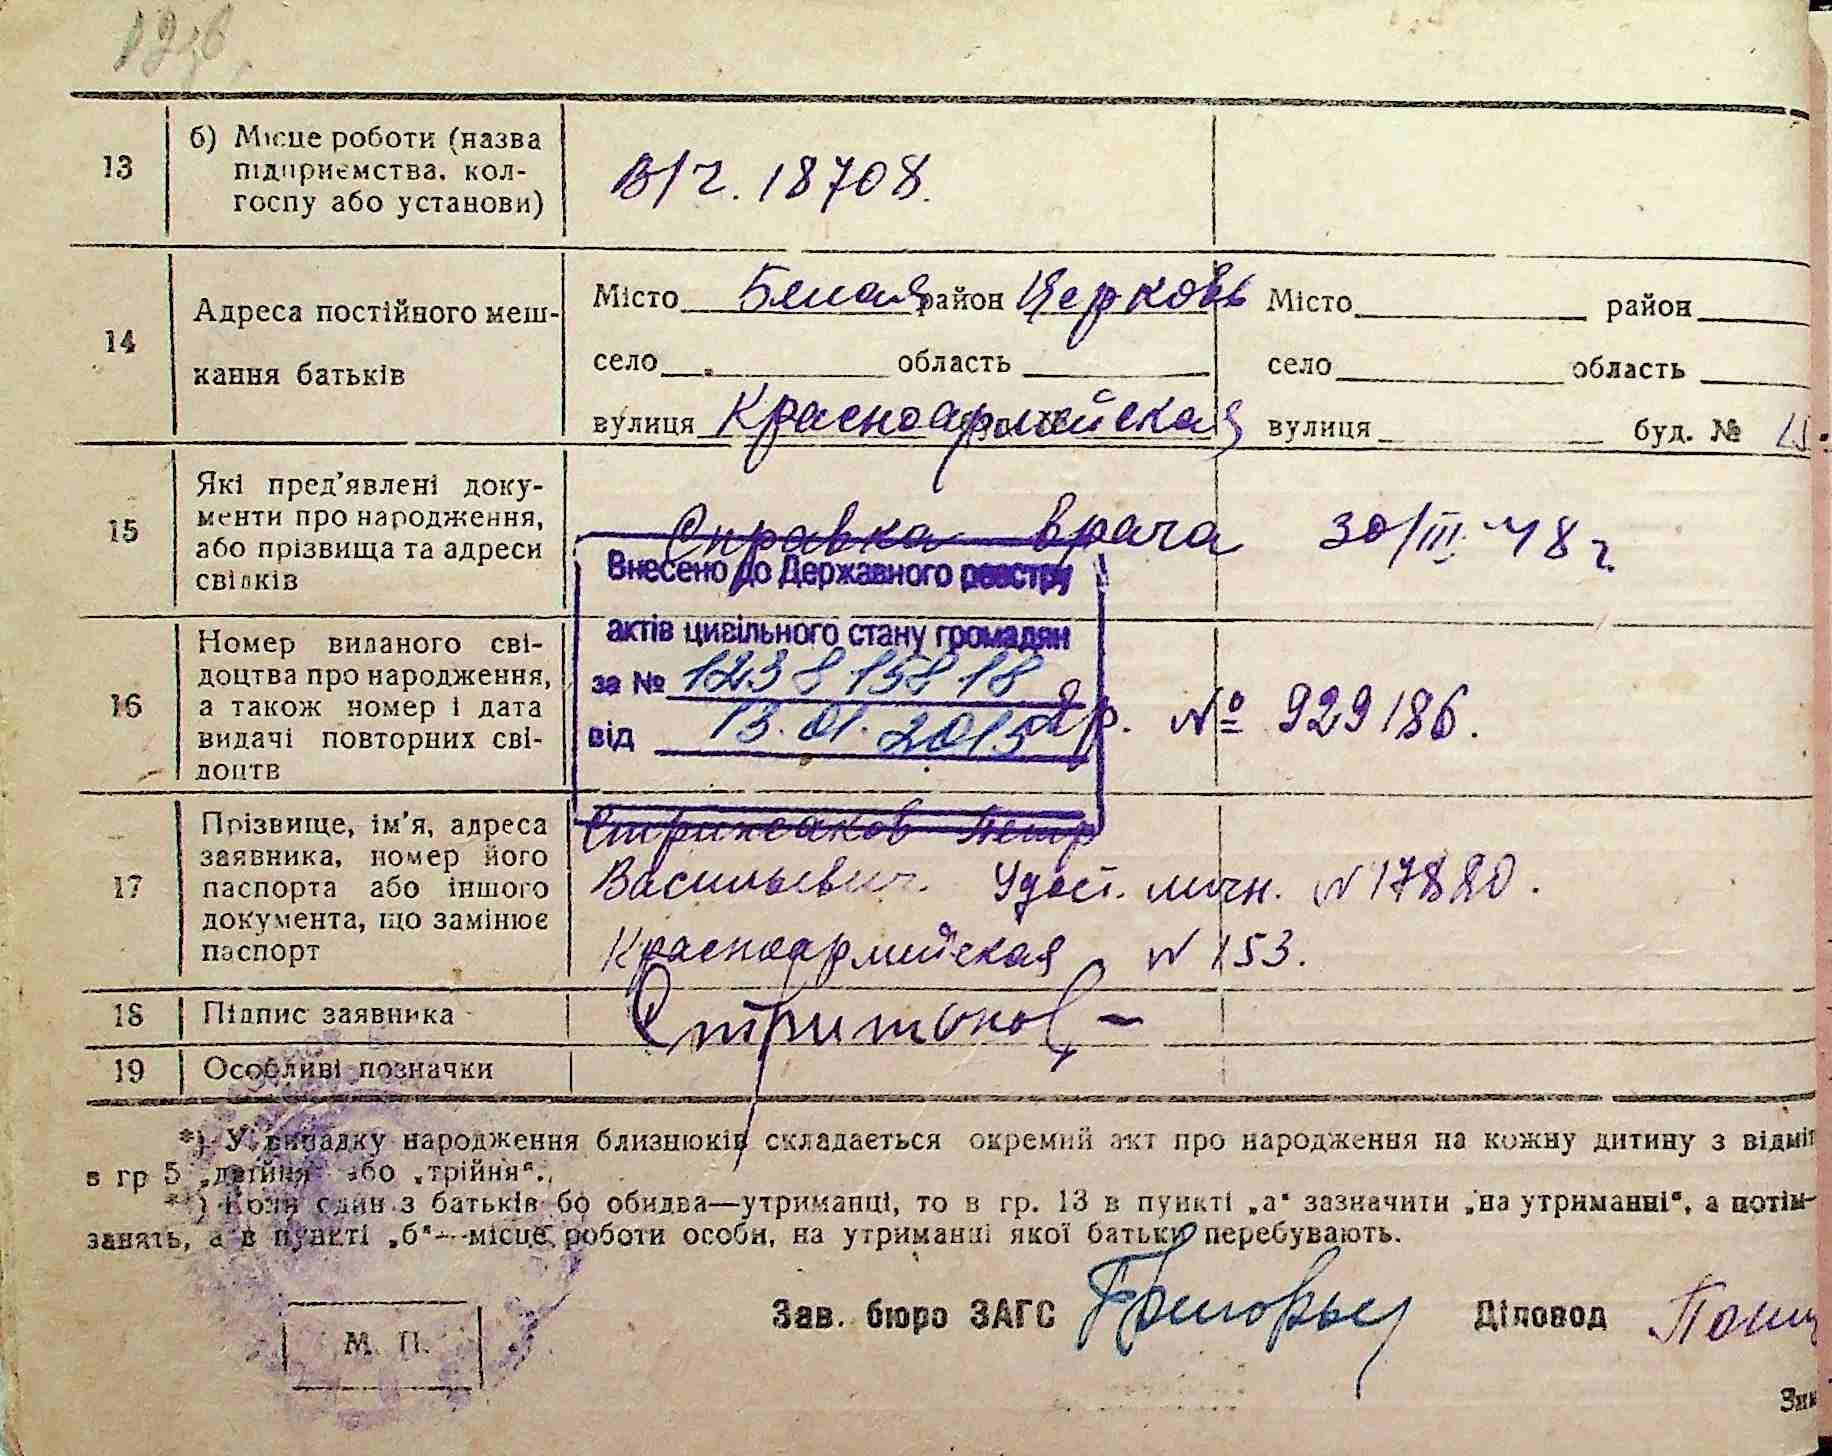 13
б) Місце роботи (назва
підприємства, кол-
госпу або установи)
в/ч. 18708.
14
Адреса постійного меш-
кання батьків
Місто Белая район Церковь Місто район
село область село область
вулиця Красноармейская вулиця буд. №
15
Які пред'явлені доку-
менти про народження,
або прізвища та адреси
свідків
Справка врача 30/III-48 г.
Внесено до Державного реєстру
актів цивільного стану громадян
за № 1238 15818
від 13.01.2015
16
Номер виданого сві-
доцтва про народження,
а також номер і дата
видачі повторних сві-
доцтв
№ 929186.
17
Прізвище, ім'я, адреса
заявника, номер його
паспорта або іншого
документа, що замінює
паспорт
Стрижаков Петр
Васильевич. Удост. личн. N 17880.
Красноармейская N 153.
18
Підпис заявника
19
Особливі позначки
*) У випадку народження близнюків складається окремий акт про народження на кожну дитину з відміт
в гр 5 „двійня“ або „трійня“.
**) Коли один з батьків бо обидва—утриманці, то в гр. 13 в пункті „а“ зазначити „на утриманні“, а потім
занять, а в пункті „б“—місце роботи особи, на утриманні якої батьки перебувають.
Зав. бюро ЗАГС Діловод
М. П.